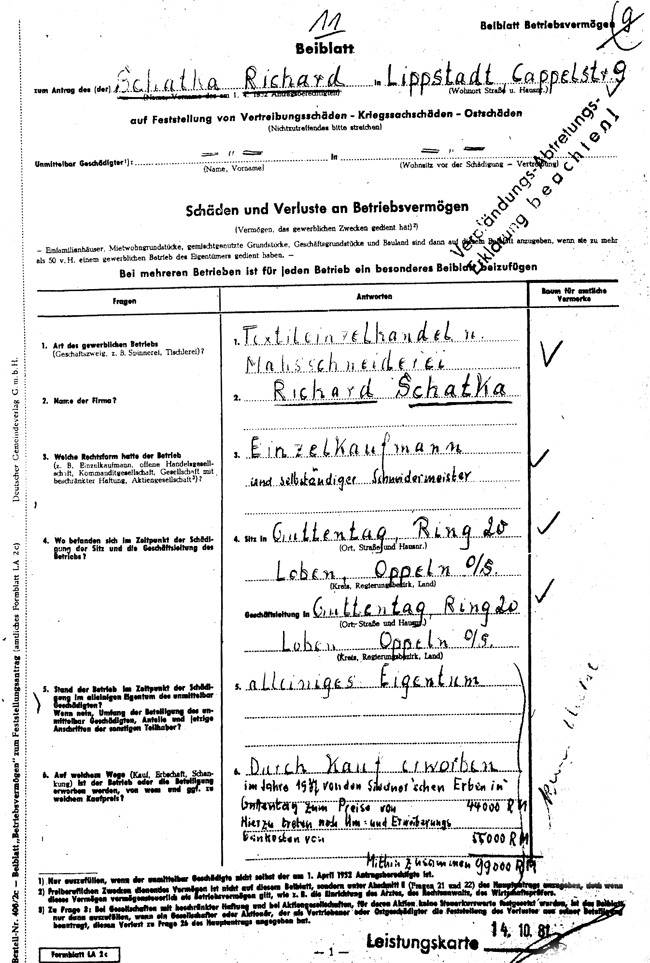 11
Beiblatt Betriebsvermögen
9
Beiblatt
zum Antrag des (der) Schatka Richard in Lippstadt Cappelstr 9
(Name, Vorname des am 1. 4. 1952 Antragsberechtigten) (Wohnort Straße u. Hausnr.)
auf Feststellung von Vertreibungsschäden - Kriegssachschäden - Ostschäden
(Nichtzutreffendes bitte streichen)
Unmittelbar Geschädigter¹): — " — in — " —
(Name, Vorname) (Wohnsitz vor der Schädigung - Vertreibung)
Verpfändungs-Abtretungs-
Erklärung beachten!
Schäden und Verluste an Betriebsvermögen
(Vermögen, das gewerblichen Zwecken gedient hat)²)
— Einfamilienhäuser, Mietwohngrundstücke, gemischtgenutzte Grundstücke, Geschäftsgrundstücke und Bauland sind dann auf diesem Beiblatt anzugeben, wenn sie zu mehr
als 50 v. H. einem gewerblichen Betrieb des Eigentümers gedient haben. —
Bei mehreren Betrieben ist für jeden Betrieb ein besonderes Beiblatt beizufügen
Fragen Antworten Raum für amtliche
Vermerke
1. Art des gewerblichen Betriebs
(Geschäftszweig, z. B. Spinnerei, Tischlerei)?
1. Textileinzelhandel u.
Mahsschneiderei
2. Name der Firma?
2. Richard Schatka
3. Welche Rechtsform hatte der Betrieb
(z. B. Einzelkaufmann, offene Handelsgesell-
schaft, Kommanditgesellschaft, Gesellschaft mit
beschränkter Haftung, Aktiengesellschaft³)?
3. Einzelkaufmann
und selbständiger Schneidermeister
4. Wo befanden sich im Zeitpunkt der Schädi-
gung der Sitz und die Geschäftsleitung des
Betriebs?
4. Sitz in Guttentag, Ring 20
(Ort, Straße und Hausnr.)
Loben, Oppeln O/S.
(Kreis, Regierungsbezirk, Land)
Geschäftsleitung in Guttentag, Ring 20
(Ort, Straße und Hausnr.)
Loben Oppeln O/S.
(Kreis, Regierungsbezirk, Land)
5. Stand der Betrieb im Zeitpunkt der Schädi-
gung im alleinigen Eigentum des unmittelbar
Geschädigten?
Wenn nein, Umfang der Beteiligung des un-
mittelbar Geschädigten, Anteile und jetzige
Anschriften der sonstigen Teilhaber?
5. alleiniges Eigentum
6. Auf welchem Wege (Kauf, Erbschaft, Schen-
kung) ist der Betrieb oder die Beteiligung
erworben worden, von wem und ggf. zu
welchem Kaufpreis?
6. Durch Kauf erworben
im Jahre von den Erben in
Guttentag zum Preise von 44000 RM
Hierzu treten noch Um- und Erweiterungs
baukosten von 55000 RM
Mithin zusammen 99000 RM
1) Nur auszufüllen, wenn der unmittelbar Geschädigte nicht selbst der am 1. April 1952 Antragsberechtigte ist.
2) Freiberuflichen Zwecken dienendes Vermögen ist nicht auf diesem Beiblatt, sondern unter Abschnitt (Fragen 21 und 22) des Hauptantrags anzugeben, auch wenn
dieses Vermögen vermögensteuerlich als Betriebsvermögen gilt, wie z. B. die Einrichtung des Arztes, des Rechtsanwalts, des Wirtschaftsprüfers.
3) Zu Frage 3: Bei Gesellschaften mit beschränkter Haftung und bei Aktiengesellschaften, für deren Aktien keine Steuerkurswerte festgesetzt wurden, ist das Beiblatt
nur dann auszufüllen, wenn ein Gesellschafter oder Aktionär, der als Vertriebener oder Ostgeschädigter die Feststellung des Verlustes aus seiner Beteiligung
beantragt, diesen Verlust zu Frage 26 des Hauptantrags angegeben hat.
Leistungskarte 14. 10. 81
Formblatt LA 2c
— 1 —
Bestell-Nr. 400/2c — Beiblatt „Betriebsvermögen" zum Feststellungsantrag (amtliches Formblatt LA 2c) Deutscher Gemeindeverlag G. m. b. H.